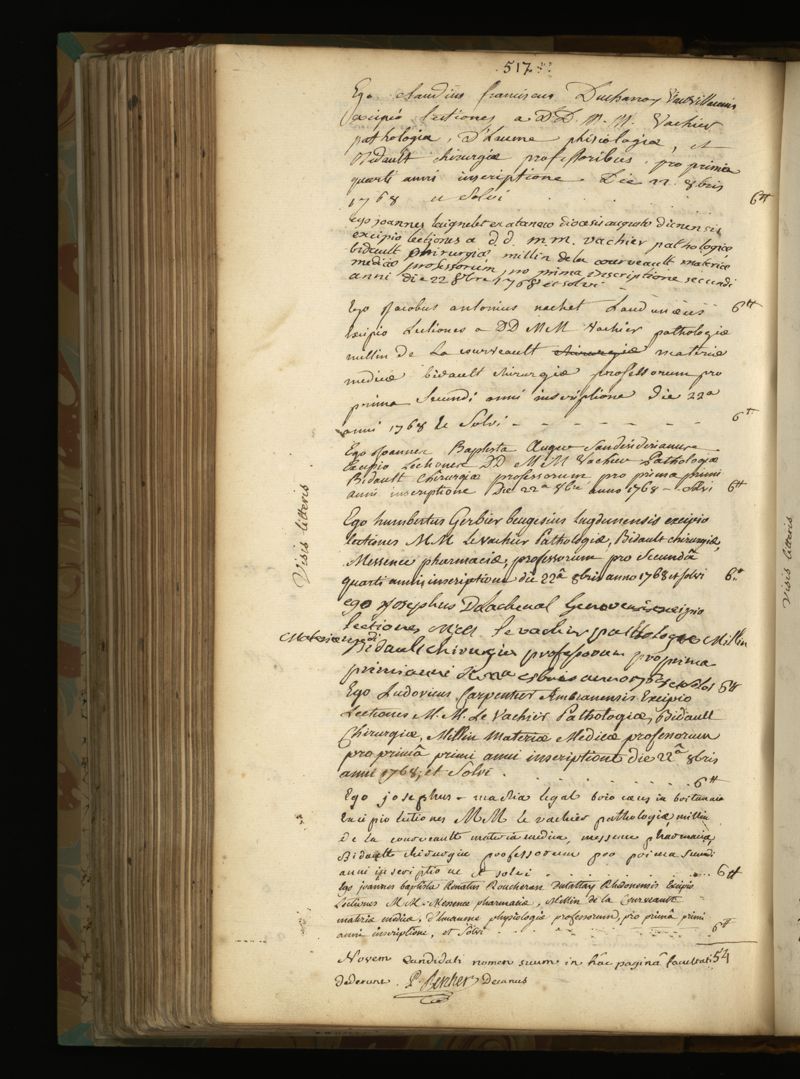 517
Ego claudius franciscus Duchanoy Vauvillaensis
excipio lectiones a D D. M. M. Vachier
pathologiæ, D'Laume phisiologiæ, et
Bidault chirurgiæ professoribus pro prima
quarti anni inscriptione. Die 22 8bris
1768 et Solvi 6tt
Ego joannes dioecesis
excipio lectiones a d. d. m. m. vachier pathologiæ
bidault chirurgiæ, millin dela courveault materiæ
medicæ professorum pro prima inscriptione secundi
anni die 22 8bre 1768 et solvi
6tt
Ego Jacobus antonius nachet Laudunæus
Excipio Lectiones a DD MM Vachier pathologiæ
millin De La courveault chirurgiæ materiæ
medicæ bidault chirurgiæ professorum pro
prima Secundi anni inscriptione die 22a
anni 1768 et Solvi 6tt
Ego Joannes Baptista
Excipio Lectiones DD M M Vachier Pathologiæ
Bidault Chirurgiæ professorum pro prima primi
anni inscriptione Die 22a 8bre anno 1768 - solvi 6tt
Visis litteris
Ego humbertus Gerbier beugesius lugdunensis excipio
lectiones M M. Le Vachier Pathologiæ, Bidault chirurgiæ,
Messence pharmaciæ, professorum pro Secundâ
quarti anni inscriptione die 22â 8bris anno 1768 et solvi 6tt
ego Josephus Delachenal excipio
lectiones MM le vachier pathologiæ Millin
Materiæ medi
Bidault chirurgiæ professorum pro prima
primi anni 8bris anno 1768 et solvi 6tt
Ego Ludovicus Carpentier Ambianensis Excipio
Lectiones M. M. Le Vachier Pathologiæ, Bidault
Chirurgiæ, Millin Materiæ Medicæ professorum
pro primâ primi anni inscriptione die 22â 8bris
anni 1768, et Solvi.
6tt
Ego josephus - maria legal
Excipio lectiones M M Le vachier pathologiæ, millin
de la courveault materia medica, messence pharmaciæ,
Bidault chirurgiæ professorum pro prima secundi
anni inscriptione et solvi 6tt
Ego joannes baptista Renatus Boucheran Dulattay Rhedonensis Excipio
Lectiones M M. Messence pharmaciæ, Millin de la Courveault
materiæ medicæ, D'lmaume physiologiæ professorum, pro primâ primi
anni inscriptione, et Solvi 6tt
Novem Candidati nomen suum in hâc paginâ facultati 54
dederunt. Decanus
Visis litteris